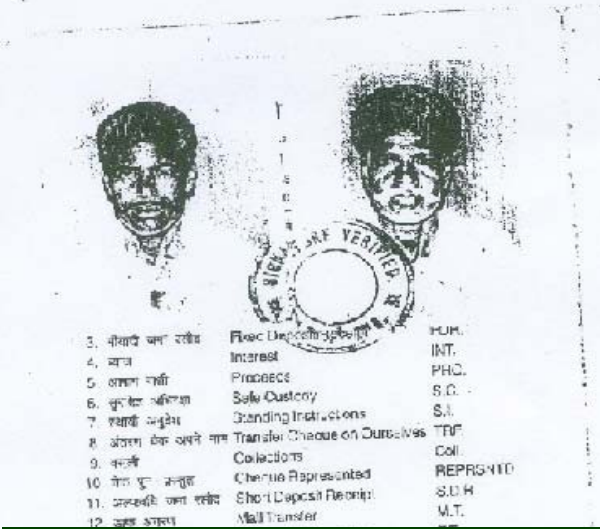 SIGNATURE VERIFIED
3. मीयादी जमा रसीद Fixed Deposit Receipt FDR.
4. ब्याज Interest INT.
5. Proceeds PRO.
6. Safe Custody S.C.
7. स्थायी अनुदेश Standing Instructions S.I.
8. अंतरण चेक अपने नाम Transfer Cheque on Ourselves TRF.
9. वसूली Collections Coll.
10. Cheque Represented REPRSNTD
11. अल्पावधि जमा रसीद Short Deposit Receipt S.D.R
12. Mail Transfer M.T.